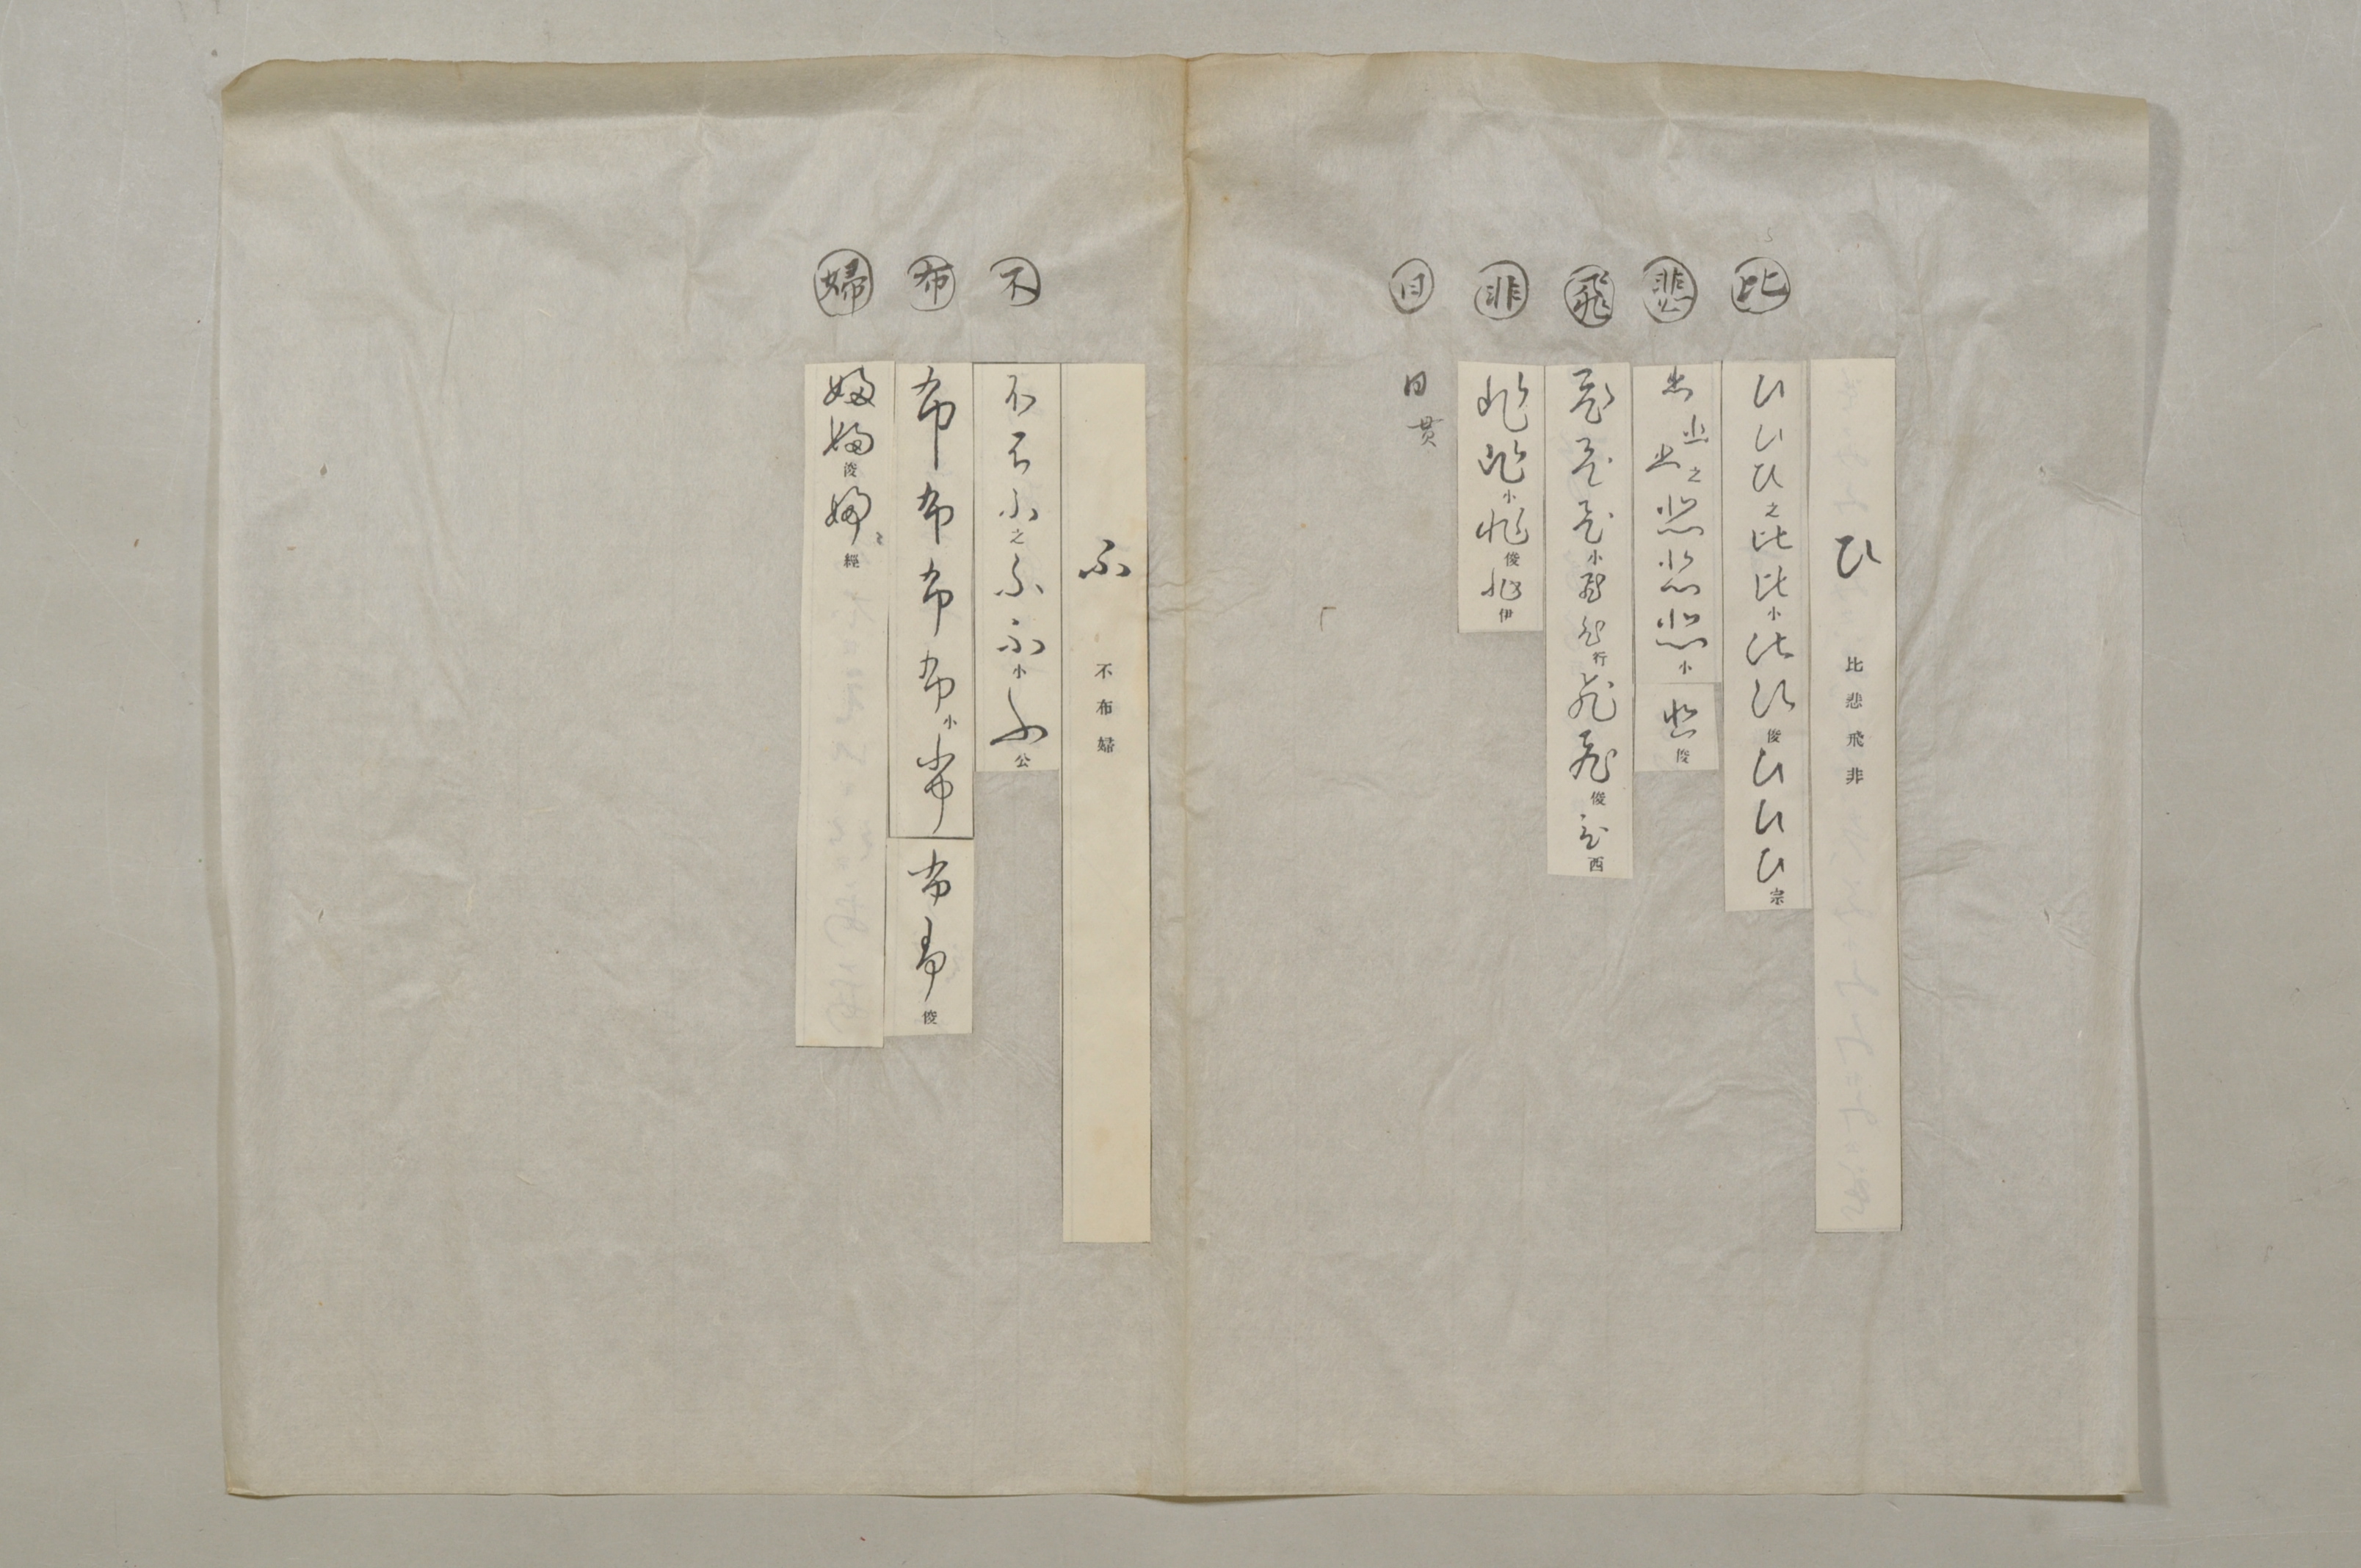 比
悲
飛
非
日
ひ 比悲飛非
ひひひ之比比小比比俊ひひひ宗
悲悲悲之悲悲悲小悲俊
飛飛飛小飛飛行飛飛俊飛西
非非小非俊非伊
日貫
不
布
婦
ふ 不布婦
不不ふ之ふふ小ふ公
布布布布小布布布俊
婦婦俊婦經